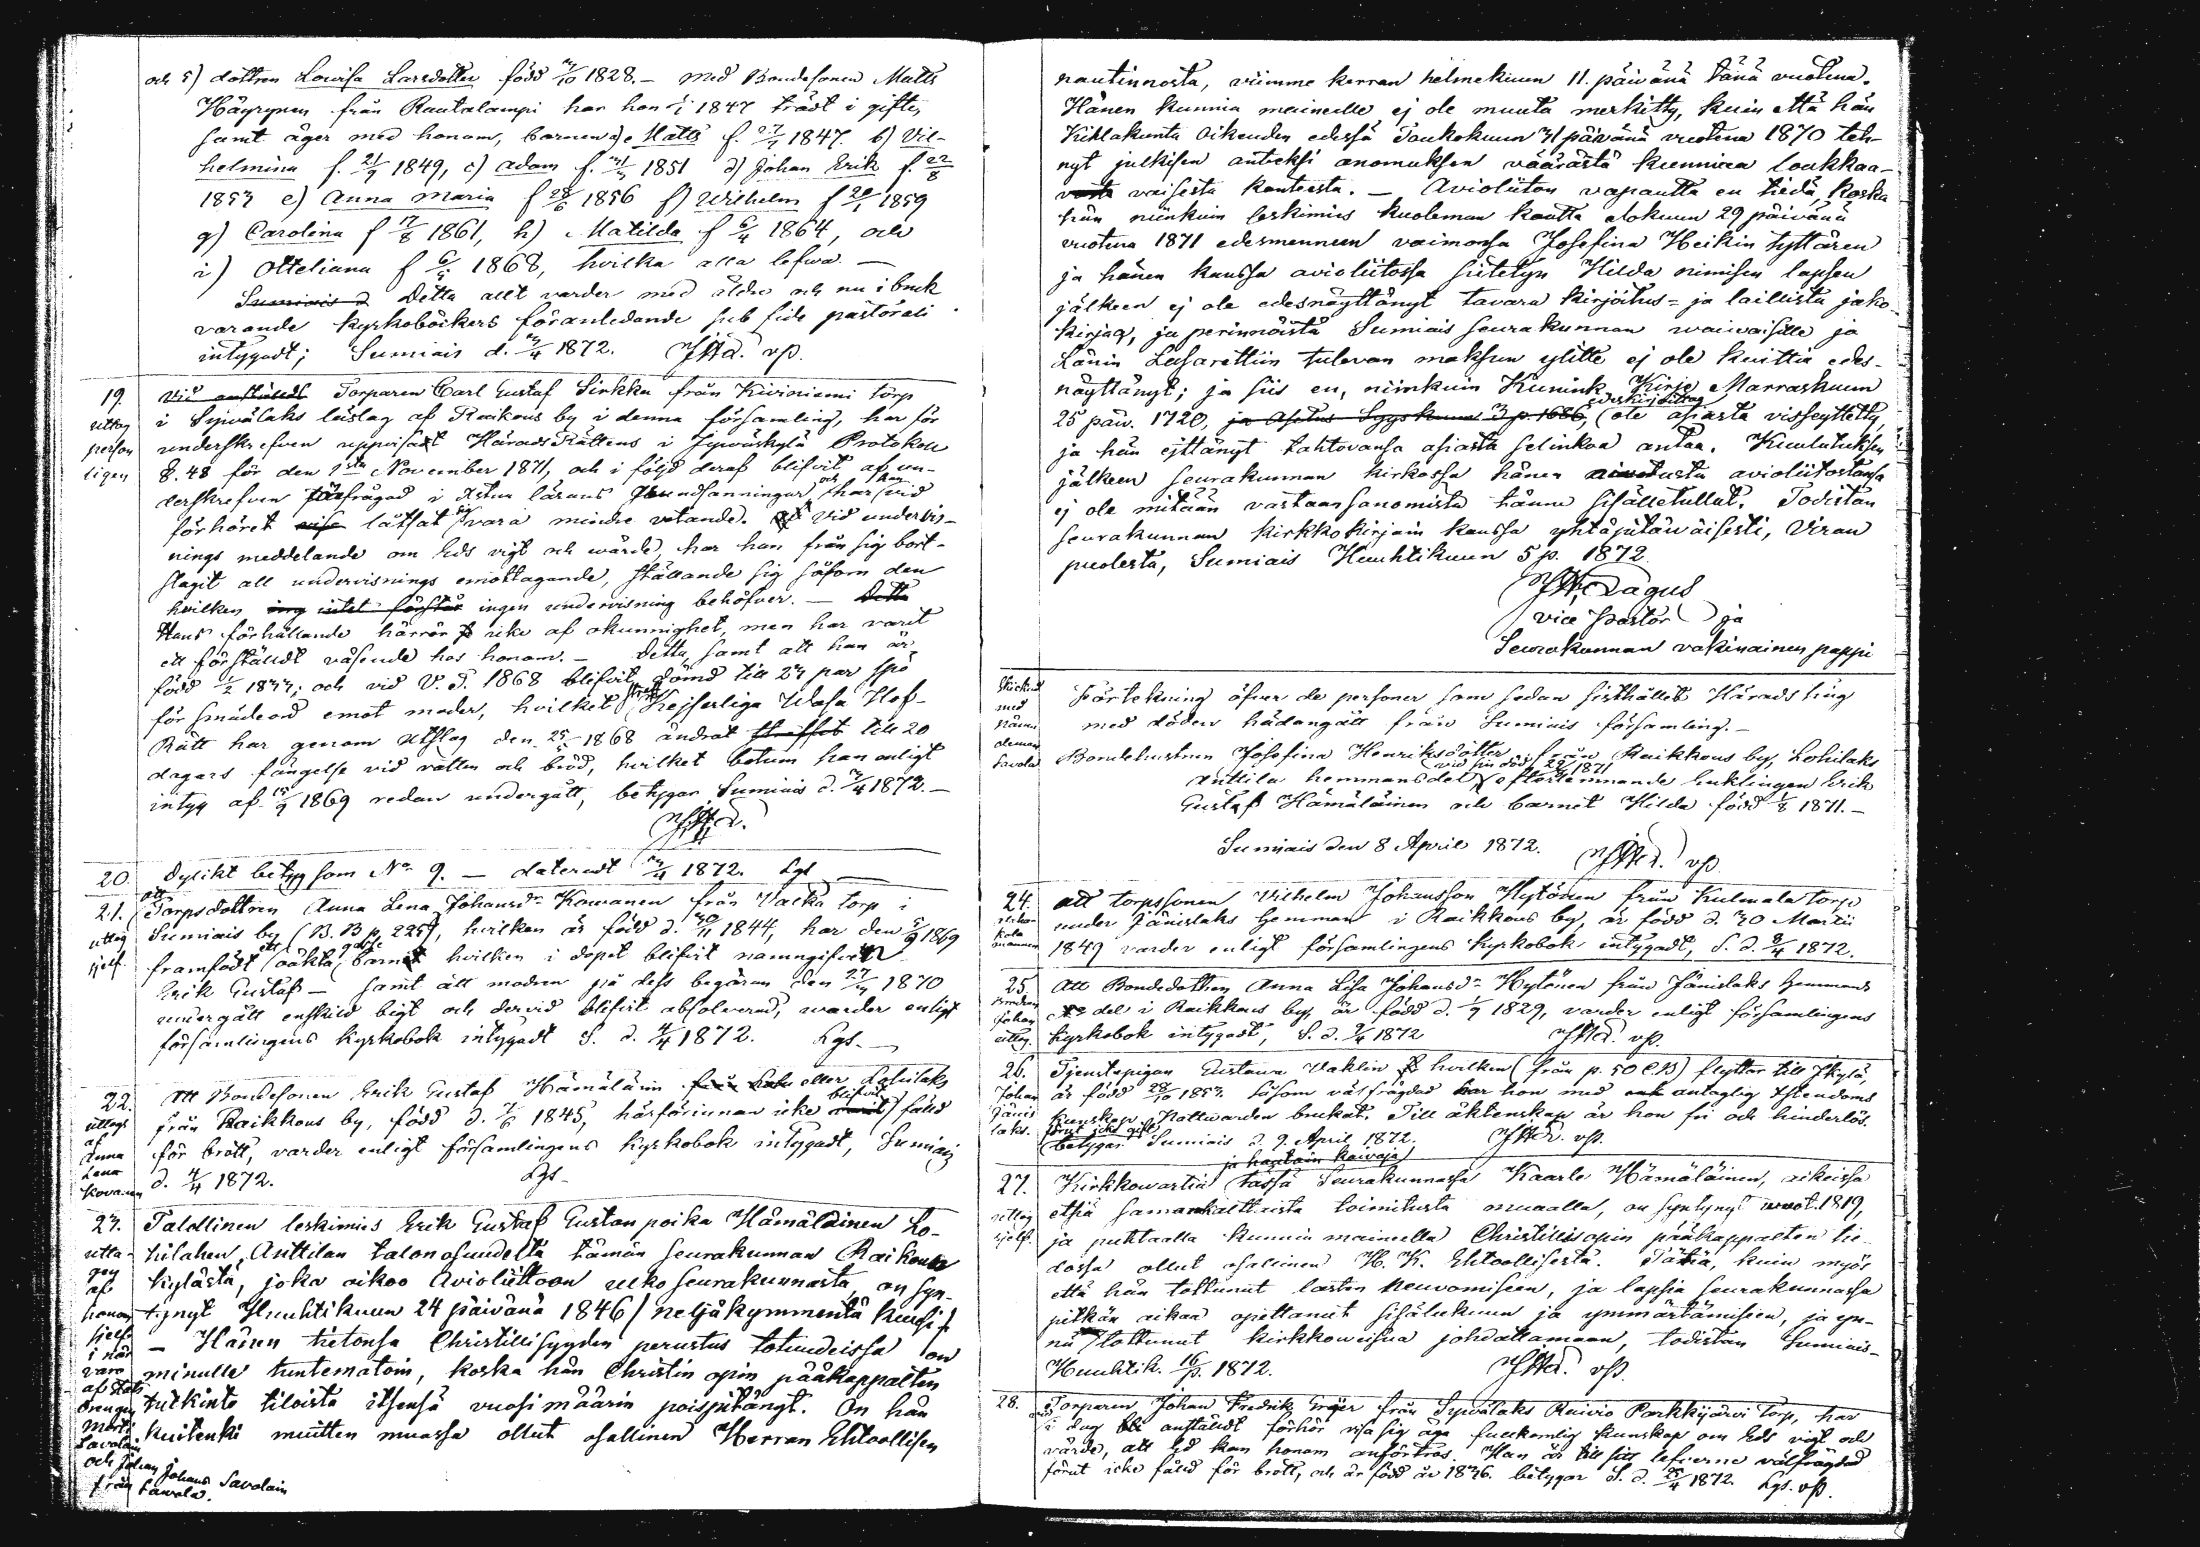 och 5) dottren Lovisa Larsdotter född 3/10 1828. – med Bondesonen Matts
Häyrynen från Rautalampi har hon i 1847 trädt i gifte,
samt äger med honom, barnen a) Matts f. 27/7 1847. b) Vil-
helmina f. 21/9 1849, c) Adam f. 1851 d) Johan Erik f. 22/8
1853 e) Anna Maria f 28/6 1856 f) Wilhelm f 20/1 1859
g) Carolina f 17/8 1861, h) Matilda f 6/4 1864, och
i) Otteliana f 1868, hvilka alla lefva. –
Sumiais d Detta allt varder med äldre och nu i bruk
varande kyrkoböckers föranledande sub fide pastorali
intygadt; Sumiais d. 3/4 1872. vp.
19. Vid anstäldt Torparen Carl Gustaf Sirkka från Kiviniemi torp
uttog i Syvälaks läslag af Raikous by i denna församling, har för
person underskrefven uppvisadt HäradsRättens i Jyväskylä Protokoll
ligen §. 48 för den 1sta November 1871, och i följd deraf blifvit af un-
derskrefven förfrågad i Xstna lärans grundsanningar, och har han vid
förhöret låtsat sig vara mindre vetande. Vid undervis-
nings meddelande om Eds vigt och wärde, har han från sig bort-
slagit all undervisnings emottagande, ställande sig såsom den
hvilken ing intet förstår ingen undervisning behöfver. – Detta
Hans förhållande härrör icke af okunnighet, men har varit
ett förställdt väsende hos honom. – Detta, samt att han är
född 1/2 1833; och vid V. T. 1868 blifvit dömd till 23 par spö
för smädeord emot moder, hvilket straff Kejserliga Wasa Hof-
Rätt har genom Utslag den 25 1868 ändrat straffet till 20
dagars fängelse vid vatten och bröd, hvilket botum han enligt
intyg af 1869 redan undergått, betygar Sumiais d. 3/4 1872. –
20. Dylikt betyg som No 9. – dateradt 3/4 1872. Lgs
21. att Torpsdottren Anna Lena Johansdr Kowanen från Valka torp i
uttog Sumiais by (B. B p. 225), hvilken är född d. 30/11 1844, har den 5/9 1869
sjelf. framfödt ett oäkta gosse barn hvilken i dopet blifvit namngifven
Erik Gustaf – samt att modren på dess begäran den 27 1870
undergått enskild bigt och dervid blifvit absolverad, warder enligt
församlingens kyrkobok intygadt S. d. 4/4 1872. Lgs. –
22. Att Bondesonen Erik Gustaf Hämäläinen från eller Lohilaks
uttogs från Raikkous by, född d. 1845, härförinnan icke blifvit varit fäld
af Anna för brott, varder enligt församlingens kyrkobok intygadt, Sumiais
Lena Kovanen d. 4/4 1872. Lgs –
23. Talollinen leskimies Erik Gustaf Gustan poika Hämäläinen Lo-
utta- hilahen, Anttilan talon osuudelta tämän seurakunnan Raikous
gen af kylästä, joka aikoo Avioliittoon ulkoseurakunnasta, on syn-
honom tynyt Huuhtikuun 24 päivänä 1846/ neljäkymmentä kuusi/.
sjelf i när – Hänen tietonsa Christillisyyden perustus totuudeissa on
varo minulle tuntematoin, koska hän Christin opin pääkappalten
af Stats drengen tutkinto tiloista itsensä vuosi määrin poispitänyt. On hän
Matts Savolain kuitenki muitten muassa ollut osallinen Herran Ehtoollisen
och Johan Johans Savolain
från Sawola.
nautinnosta, viimme kerran helmekuun 11. päivänä tänä vuotena.
Hänen kunnia maineelle ej ole muuta merkitty, kuin että hän
Kihlakunta Oikeuden edessä Toukokuun 31 päivänä vuotena 1870 teh-
nyt julkisen anteeksi anomuksen väärästä kunniaa loukkaa-
vasta vaisesta kanteesta. – Avioliiton vapautta en tiedä, koska
hän niinkuin leskimies kuoleman kautta elokuun 29 päivänä
vuotena 1871 edesmenneen vaimonsa Josefina Heikin tyttären
ja hänen kanssa avioliitossa siitetyn Hilda nimisen lapsen
jälkeen ej ole edesnäyttänyt tavara kirjoitus- ja laillista jako-
kirjaa, ja perinnöistä Sumiais seurakunnan waivaisille ja
Länin Lasarettiin tulevan maksun ylitte ej ole kuittia edes-
näyttänyt; ja siis en, niinkuin Kunink. Kirje Marraskuun
25 päiv. 1720, ja Asetus Syyskuun 3 p. 1686, edeskirjoittaa ole asiasta visseytetty,
ja hän ejttänyt tahtovansa asiasta selinkoa antaa. Kuulutuksen
jälkeen seurakunnan kirkossa hänen aivotusta avioliitostansa
ej ole mitään vastaansanomista tänne sisälletullut. Todistan
seurakunnan kirkkokirjain kanssa yhtäpitäwäisesti, Viran
puolesta, Sumiais Huuhtikuun 5 p. 1872.
Dagus
vice Pastor ja
Seurakunnan vakinainen pappi
Skickad med Nämndeman Savola Förtekning öfver de personer som sedan sisthållet Härads ting
med döden hädangått från Sumiais församling. –
Bondehustrun Josefina Henriksdotter från Raikkous by, Lohilaks
Anttila hemmansdel vid sin död 29/8 1871 efterlemnande enklingen Erik
Gustaf Hämäläinen och barnet Hilda född 1/8 1871. –
Sumiais den 8 April 1872. vp.
24. att torpssonen Vilhelm Johansson Hytönen från Kulmala torp
under Jänislaks hemman i Raikkous by, är född d. 30 Martii
1849 varder enligt församlingens kyrkobok intygadt, S. d. 8/4 1872.
25. Att Bondedottren Anna Lisa Johansdr Hytönen från Jänislaks hemmans
del i Raikkous by, är född d. 1829, varder enligt församlingens
uttog. kyrkobok intygadt, S. d. 9/4 1872 vp.
26. Tjenstepigan Gustava Vaklin hvilken (från p. 50 C.B) flyttar till Jkylä,
Johan är född 28/10 1853. Såsom välfrägdad har hon med antaglig Xstendoms
Jänis laks. kunskap Nattwarden brukat. Till äktenskap är hon fri och hinderlös.
förut icke gift betygar Sumiais d. 9. April 1872. vp.
ja hautain kaivaja
27. Kirkkowartia tässä Seurakunnassa Kaarle Hämäläinen, aikeissa
uttog etsiä samankaltaista toimitusta muualla, on syntynyt wuot. 1819,
sjelf. ja puhtaalla kunnia maineella Christillisopin pääkappalten tie-
dossa ollut osallinen H. K. Ehtoollisesta. Tätä, kuin myös
että hän tottunut lasten neuvomiseen, ja lapsia seurakunnassa
pitkän aikaa opettanut sisälukuun ja ymmärtämiseen, ja en-
nä tottunut kirkkoweisua johdattamaan, todistan Sumiais –
Huuhtik. 16 p. 1872. vp.
28. Torparen Johan Fredrik Gröjer från Syvälaks Raivio Parkkijärvi torp, har
i dag vid anstäldt förhör visa sig äga fullkomlig kunskap om Eds vigt och
värde, att Ed kan honom anförtros. Han är till sitt lefverne välfrägdad
förut icke fälld för brott, och är född år 1836. betygar S. d. 25/4 1872. Lgs. vp.